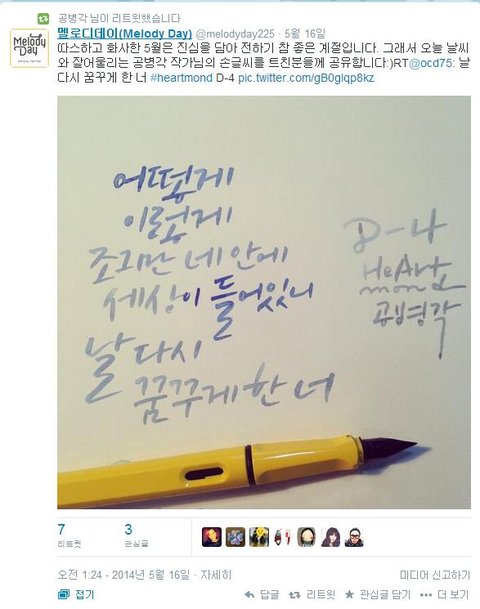 공병각 님이 리트윗했습니다
Melody Day
멜로디데이(Melody Day) @melodyday225 · 5월 16일
따스하고 화사한 5월은 진심을 담아 전하기 참 좋은 계절입니다. 그래서 오늘 날씨
와 잘어울리는 공병각 작가님의 손글씨를 트친분들께 공유합니다:)RT@ocd75: 날
다시 꿈꾸게 한 너 #heartmond D-4 pic.twitter.com/gB0glqp8kz
어떻게
이렇게
조그만 네 안에
세상이 들어있니
날 다시
꿈꾸게 한 너
D-4
HeArt
mon
공병각
7
리트윗
3
관심글
오전 1:24 - 2014년 5월 16일 · 자세히
미디어 신고하기
접기
답글
리트윗
관심글 담기
더 보기